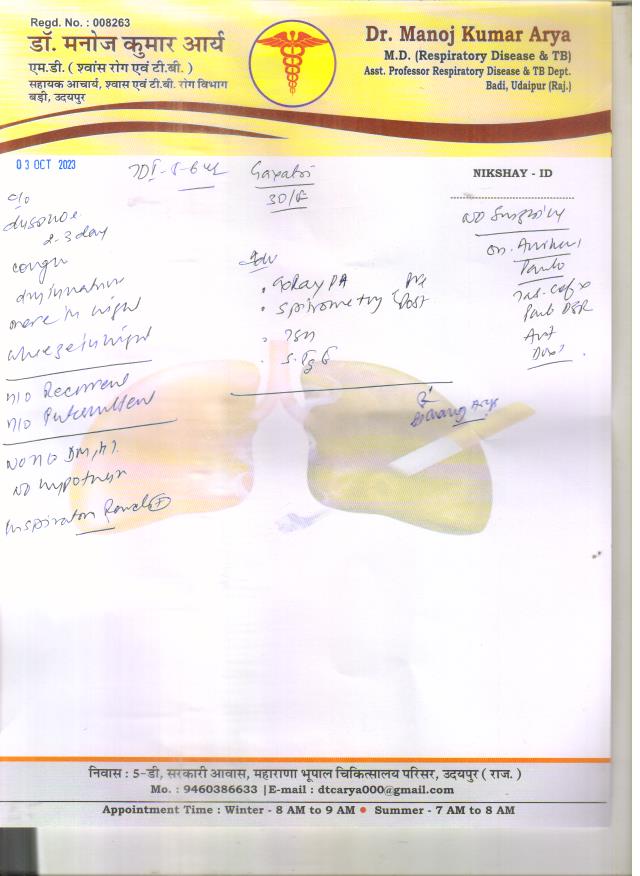 Regd. No. : 008263
डॉ. मनोज कुमार आर्य
एम.डी. ( श्वांस रोग एवं टी.बी. )
सहायक आचार्य, श्वास एवं टी.बी. रोग विभाग
बड़ी, उदयपुर
Dr. Manoj Kumar Arya
M.D. (Respiratory Disease & TB)
Asst. Professor Respiratory Disease & TB Dept.
Badi, Udaipur (Raj.)
03 OCT 2023
Gayatri
30/F
NIKSHAY - ID
c/o
2-3 day
cough
more in night
wheeze in night
H/O Recurrent
H/O Intermittent
NO H/O DM, HT
NO hypothyr
Inspiratory
Adv
• Xray PA
• Spirometry Pre Post
• TSH
• S. IgE
NO Surgery
on.
Panto
Tab. Cef x
Panto DSR
निवास : 5-डी, सरकारी आवास, महाराणा भूपाल चिकित्सालय परिसर, उदयपुर ( राज. )
Mo. : 9460386633 |E-mail : dtcarya000@gmail.com
Appointment Time : Winter - 8 AM to 9 AM ● Summer - 7 AM to 8 AM